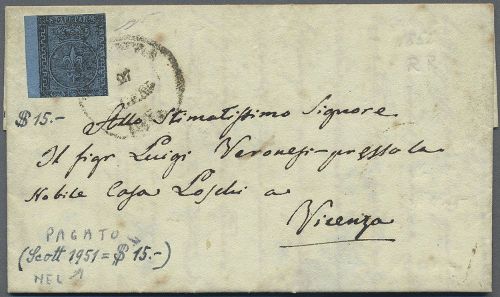 STATI PARM.
27
$15.-
Allo Stimatissimo Signore
Il Sigr Luigi Veronesi - presso la
Nobile Casa Loschi a
Vicenza
PAGATO
(Scott 1951 = $15.-)
NEL
RR